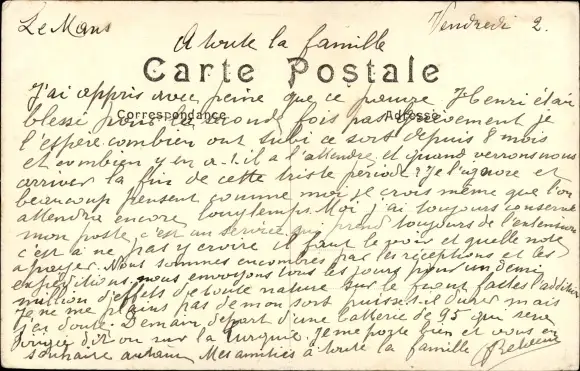 Le Mans Vendredi 2.
A toute la famille
Carte Postale
J'ai appris avec peine que ce pauvre Henri était
Correspondance Adresse
blessé pour la seconde fois pas grièvement je
l'espère combien ont subi ce sort depuis 8 mois
et combien y en a-t-il a l'attendre, et quand verrons nous
arriver la fin de cette triste période? Je l'ignore et
beaucoup pensent comme moi, je crois même que l'on
attendra encore longtemps. Moi j'ai toujours conservé
mon poste, c'est un service qui prend toujours de l'extension
c'est à ne pas y croire il faut le voir et quelle note
a payer. Nous sommes encombrés par les réceptions et les
expéditions, nous envoyons tous les jours pour un demi
million d'effets de toute nature sur le front faites l'addition
Je ne me plains pas de mon sort puisse-il durer mais
j'en doute. Demain départ d'une batterie de 95 qui sera
dit on sur la Turquie. Je me porte bien et vous en
souhaite autant Mes amitiés à toute la famille